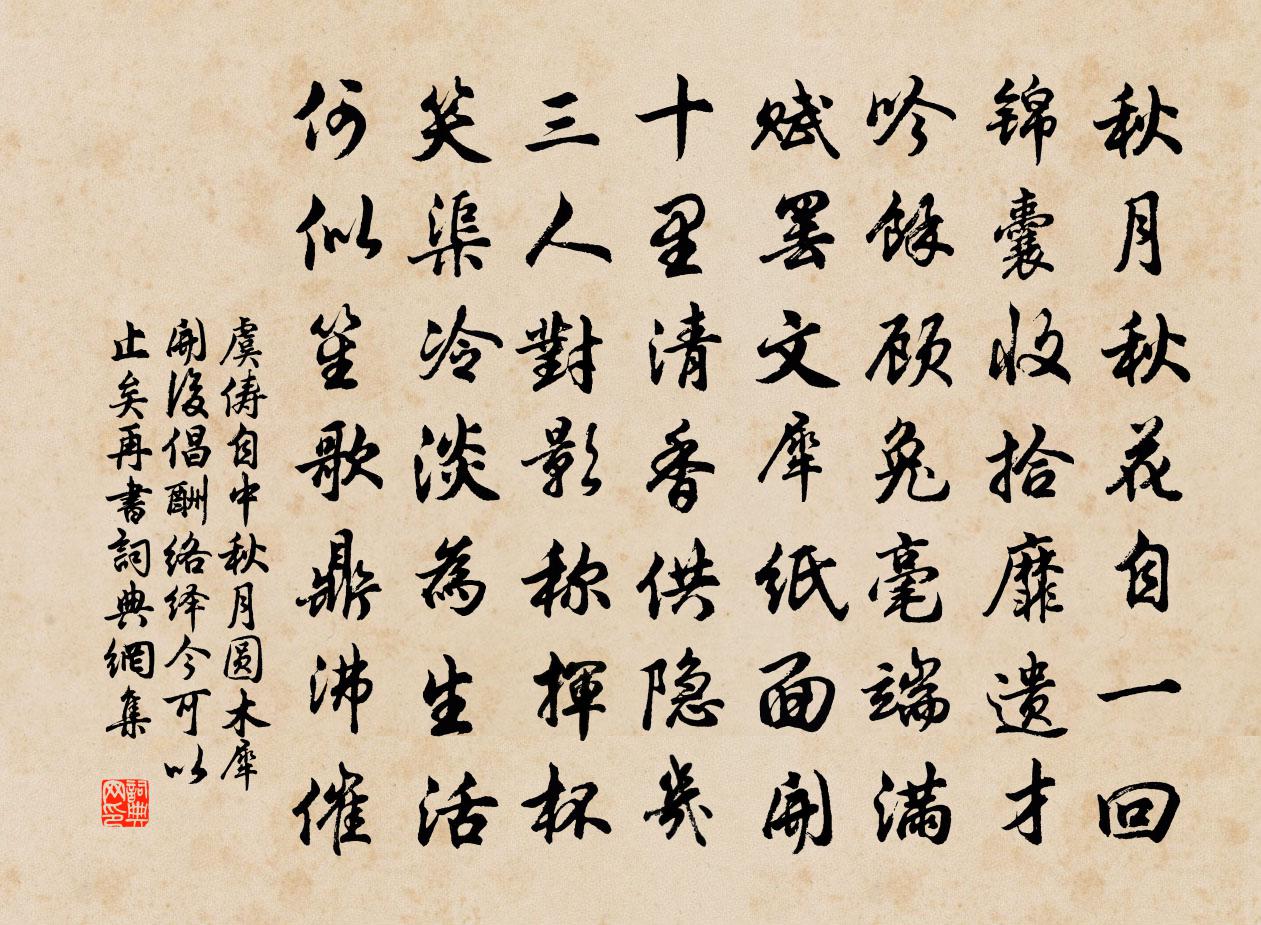 秋月秋花自一回
锦囊收拾靡遗才
吟余顾兔毫端满
赋罢文犀纸面開
十里清香供隐几
三人對影称揮杯
笑渠冷淡為生活
何似笙歌鼎沸催
虞俦自中秋月圆木犀
開後倡酬络绎今可以
止矣再書詞典網集
詞典网印